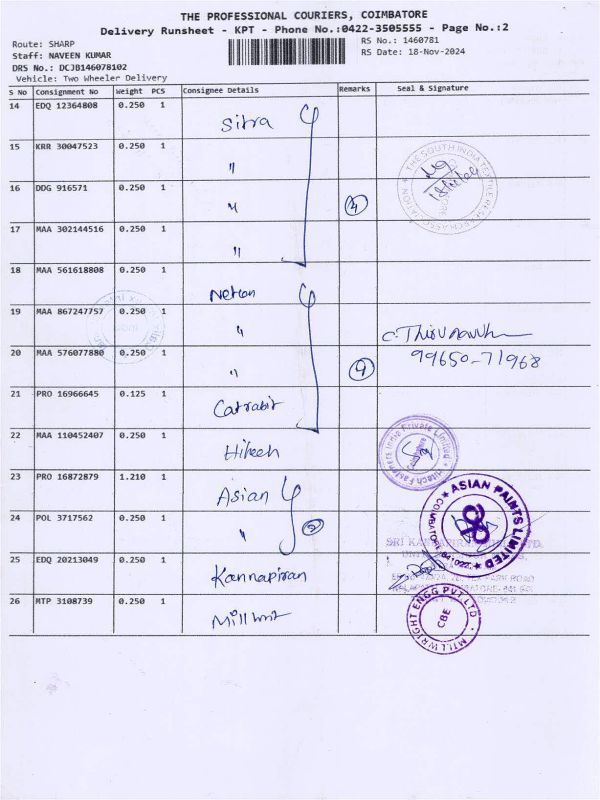 THE PROFESSIONAL COURIERS, COIMBATORE
Delivery Runsheet - KPT - Phone No.:0422-3505555 - Page No.:2
Route: SHARP
RS No.: 1460781
Staff: NAVEEN KUMAR
RS Date: 18-Nov-2024
DRS No.: DCJB146078102
Vehicle: Two Wheeler Delivery
S No Consignment No Weight PCS Consignee Details Remarks Seal & Signature
14 EDQ 12364808 0.250 1 Sitra
15 KRR 30047523 0.250 1 "
THE SOUTH INDIA TEXTILE RESEARCH ASSOCIATION
16 DDG 916571 0.250 1 " 4
17 MAA 302144516 0.250 1 "
18 MAA 561618808 0.250 1
19 MAA 867247757 0.250 1 "
99650-71968
20 MAA 576077880 0.250 1 " 4
21 PRO 16966645 0.125 1
22 MAA 110452407 0.250 1 Hitech
Hitech Fasteners India Private Limited
Coimbatore
23 PRO 16872879 1.210 1 Asian
ASIAN PAINTS LIMITED
24 POL 3717562 0.250 1 " 2
25 EDQ 20213049 0.250 1 Kannapiran
26 MTP 3108739 0.250 1
MILLWRIGHT ENGG PVT LTD
CBE